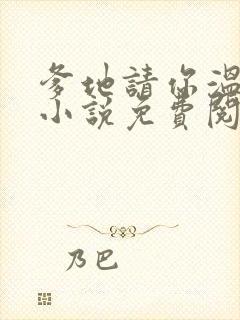 爹地請你溫
小說免費閱
乃巴